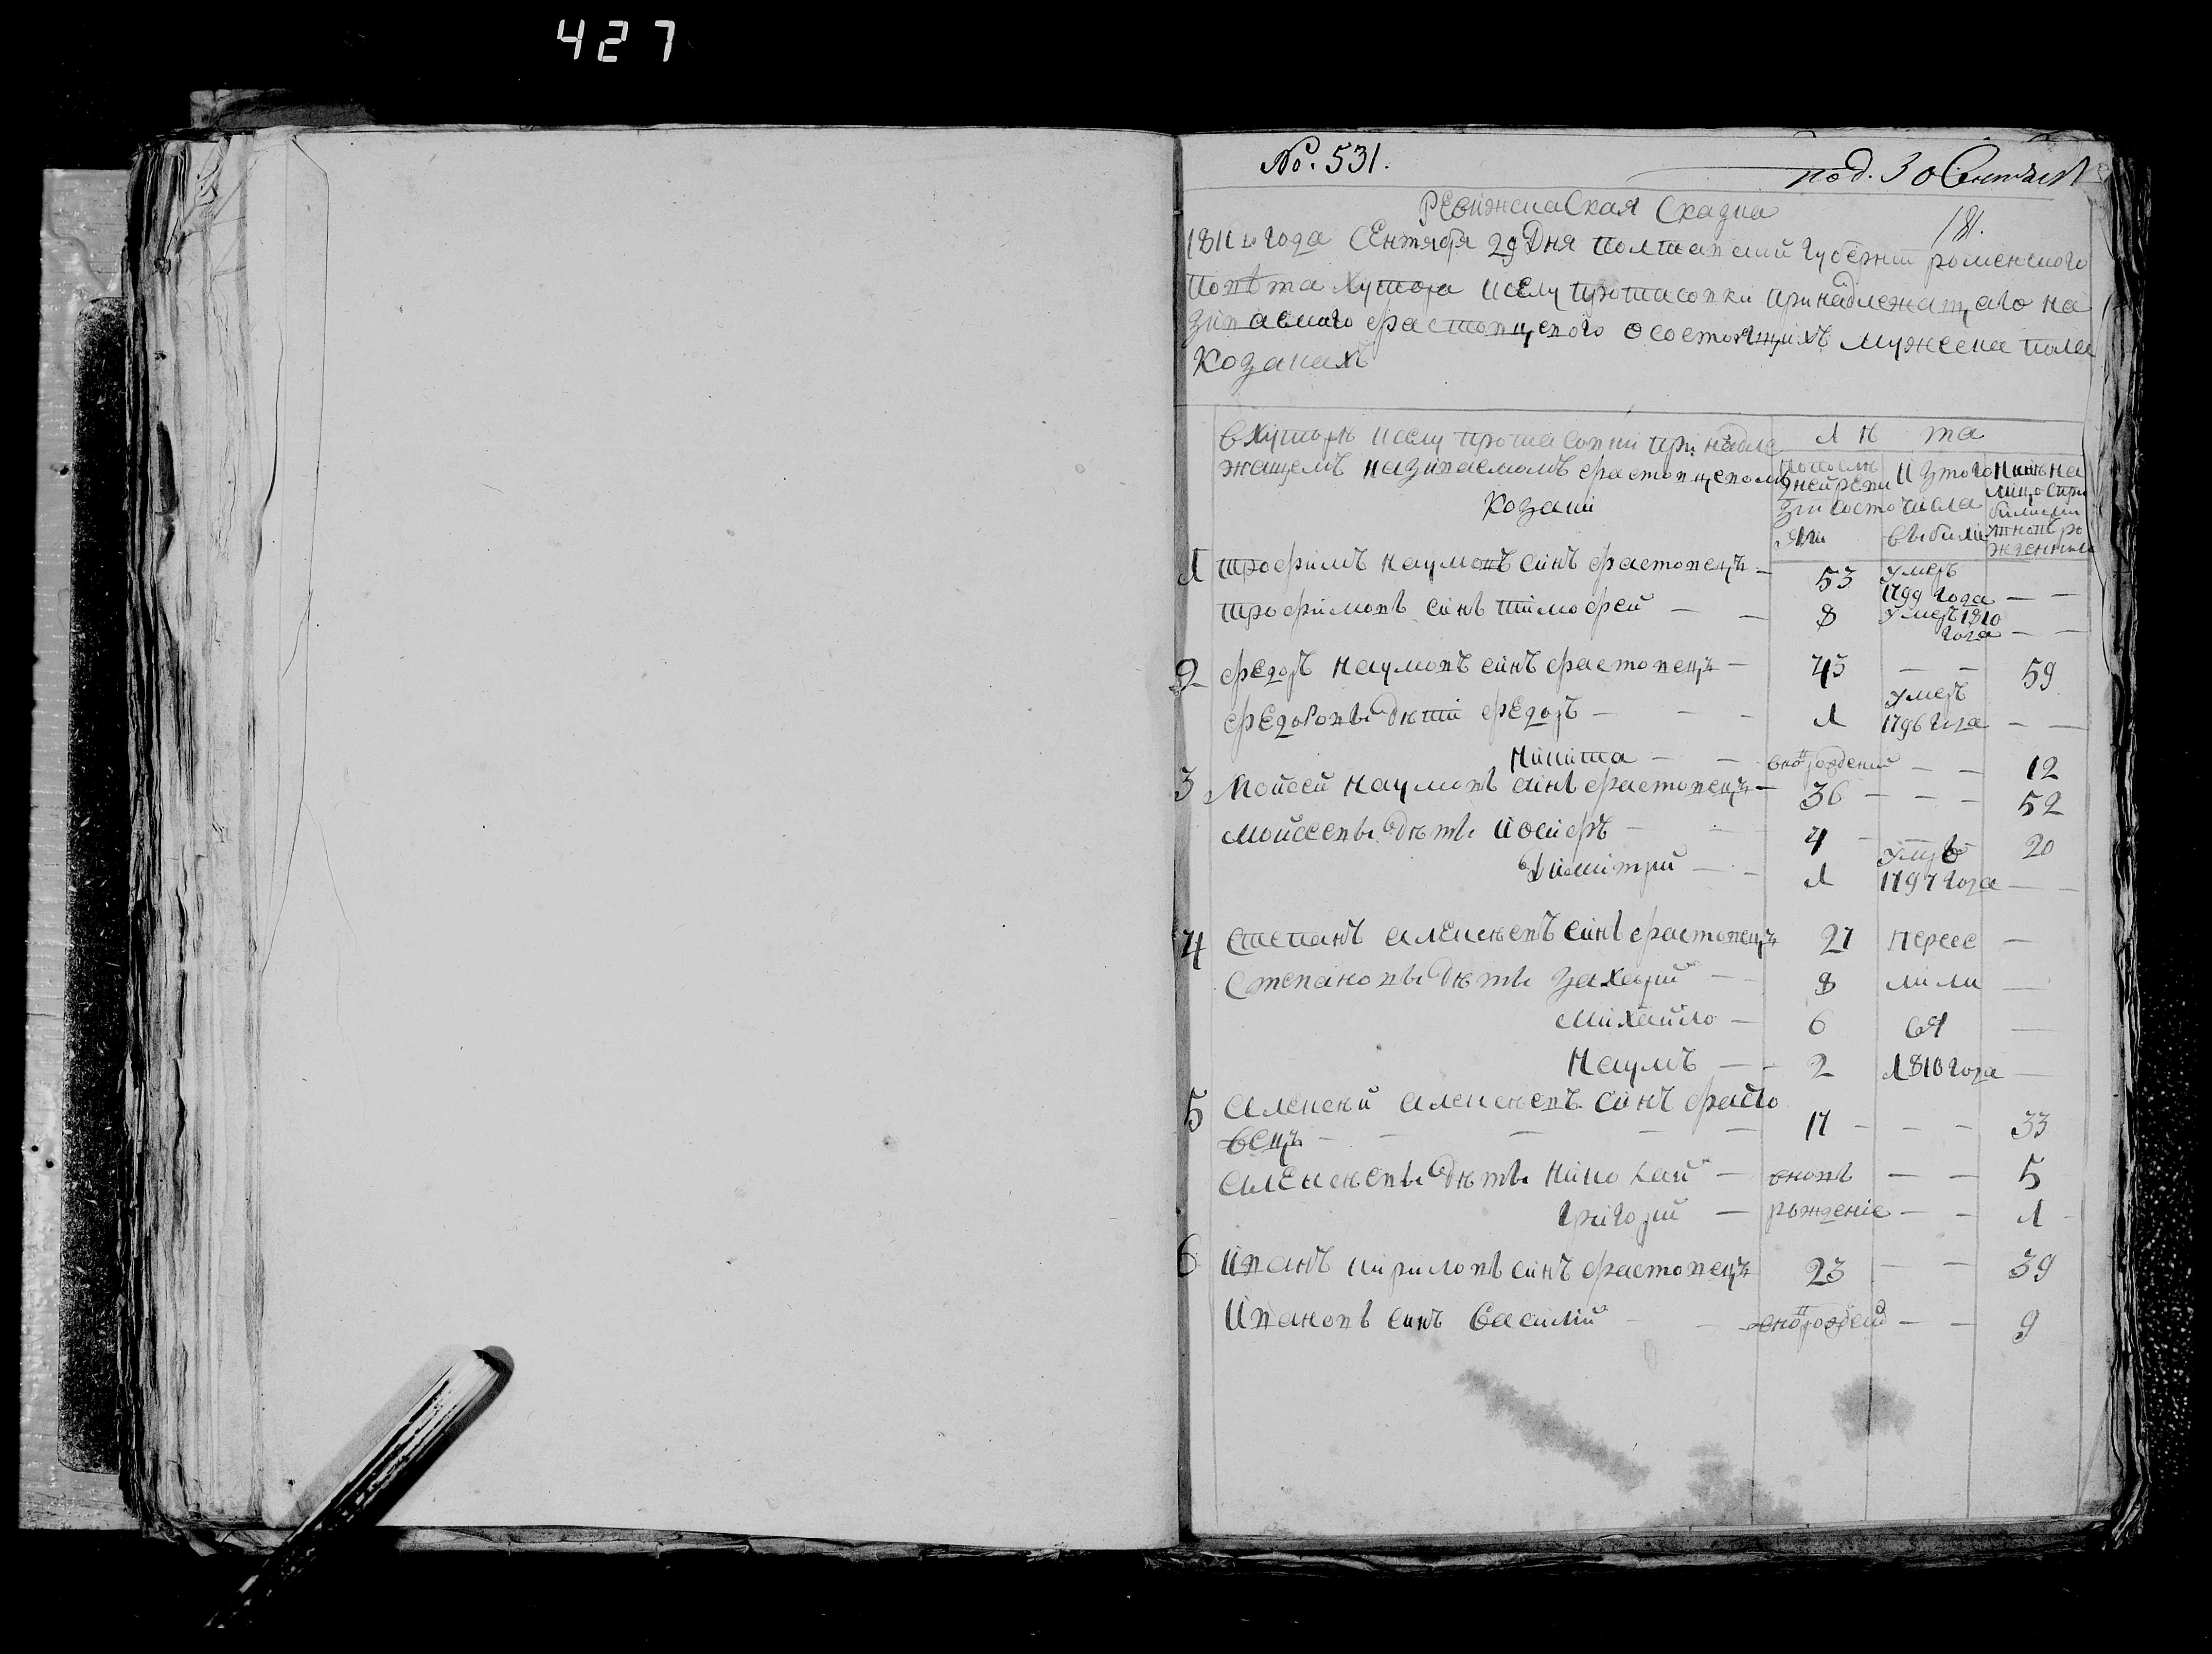 427
№. 531.
под. 30 Сентября
181.
Ревижскаская Сказка
1811го года Сентября 29 Дня полтавский губернии роменского
повѣта хутора кселу протасовки принадлежащаго на
зиваемого фастовцевого осостоящихъ мужеска пола
козакахъ
вхуторѣ кселу протасовки принадле
жащемъ називаемомъ фастовцевомъ
козаки
Лѣта
попослѣ
дней реви
зии состо
яли
Изтого
числа
выбыли
Нинѣ на
лицо
жденними
1 трофимъ наумовъ синъ фастовецъ — 53 умеръ 1799 года — —
трофимовъ синъ тимофей — — 8 умеръ 1810 года — —
2 федоръ наумовъ синъ фастовецъ — 43 — — 59
федоровы дѣти федоръ — — — 1 умеръ 1796 года — —
Никита — — внов рождений — — 12
3 Мойсей наумовъ синъ фастовецъ — 36 — — — 52
мойсеевы дѣты йосифъ — — 4 — 20
Димитрий — — 1 умеръ 1797 года — —
4 Степанъ алексѣевъ синъ фастовецъ 27 пересе —
Степановы дѣты захарий — 8 лили —
михайло — 6 ся —
Наумъ — — 2 1810 года —
5 Алексѣй алексѣевъ синъ фасто
вецъ — — — — — 17 — — — 33
алексѣевы дѣты николай — вновь — — 5
григорий — рожденіе — — 1
6 Иванъ кириловъ синъ фастовецъ 23 — — 39
Ивановъ синъ василий — — внов рожден — — 9